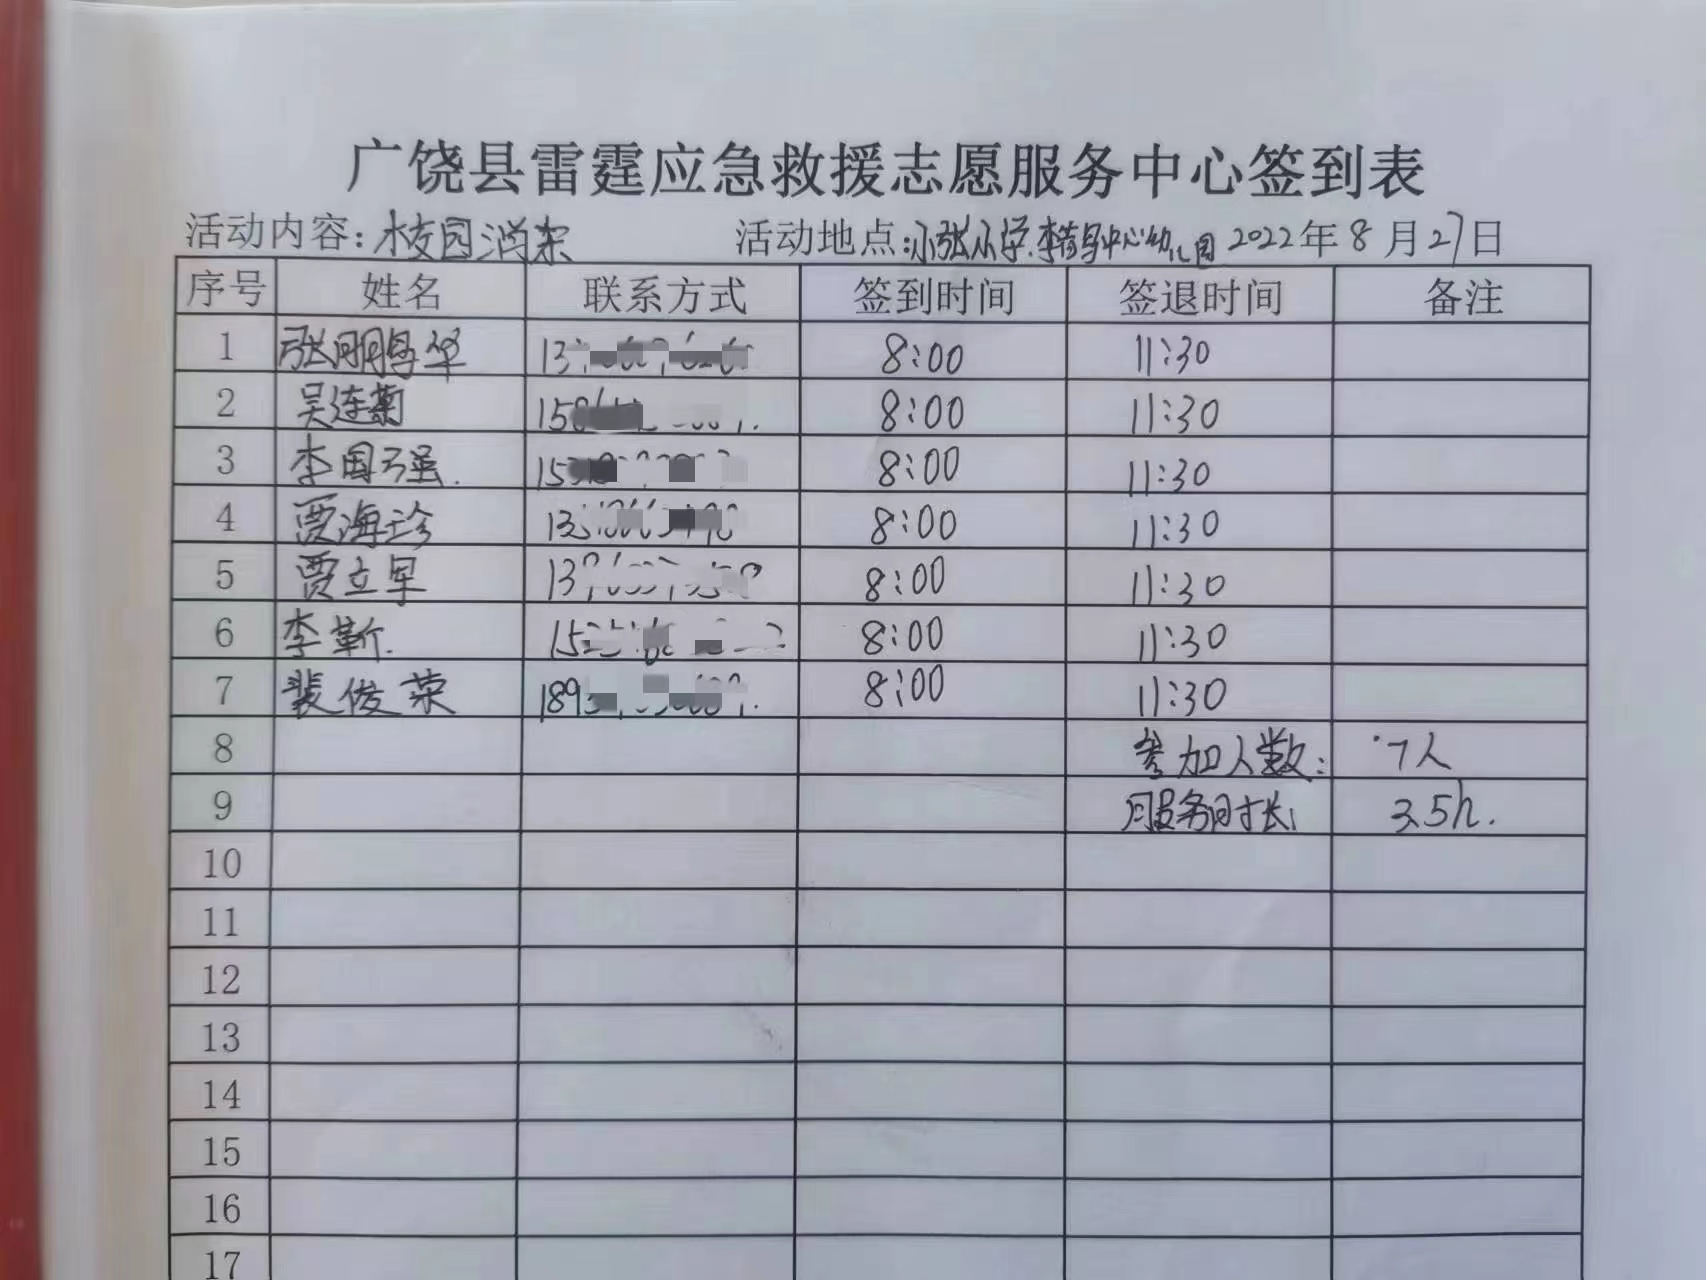 广饶县雷霆应急救援志愿服务中心签到表
活动内容：校园消杀 活动地点：小张小学.李鹊中心幼儿园 2022年8月27日
序号 姓名 联系方式 签到时间 签退时间 备注
1 张鹏华 13 8:00 11:30
2 吴连菊 15 8:00 11:30
3 李国强. 15 8:00 11:30
4 贾海珍 13 8:00 11:30
5 贾立早 13 8:00 11:30
6 李靳. 15 8:00 11:30
7 裴俊荣 189 8:00 11:30
8 参加人数： 7人
9 服务时长 3.5h.
10
11
12
13
14
15
16
17